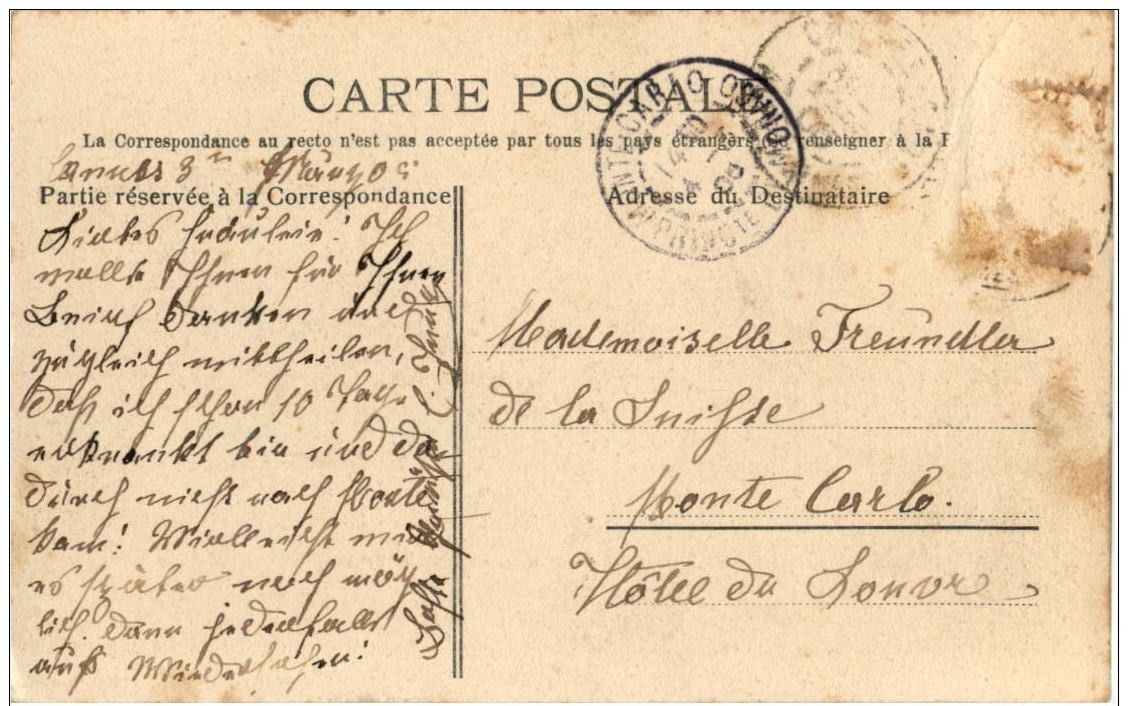 CARTE POSTALE
La Correspondance au recto n'est pas acceptée par tous les pays étrangers (Se renseigner à la P
Cannes 3ten März 05
Partie réservée à la Correspondance
Adresse du Destinataire
Liebes Fräulein! Ich
wollte Ihnen für Ihren
Brief danken und
zugleich mittheilen,
daß ich schon 10 Tage
erkrankt bin und da
durch nicht nach Monte
kam! Vielleicht mir
es später noch mög
lich. Dann jedenfalls
auf Wiedersehen!
Beste
Mademoiselle Freundler
de la Suisse
Monte Carlo.
Hôtel du Louvre
MONTE-CARLO
PRINCTE DE MONACO